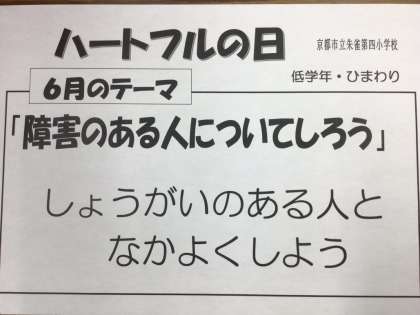 ハートフルの日
京都市立朱雀第四小学校
低学年・ひまわり
6月のテーマ
「障害のある人についてしろう」
しょうがいのある人と
なかよくしよう